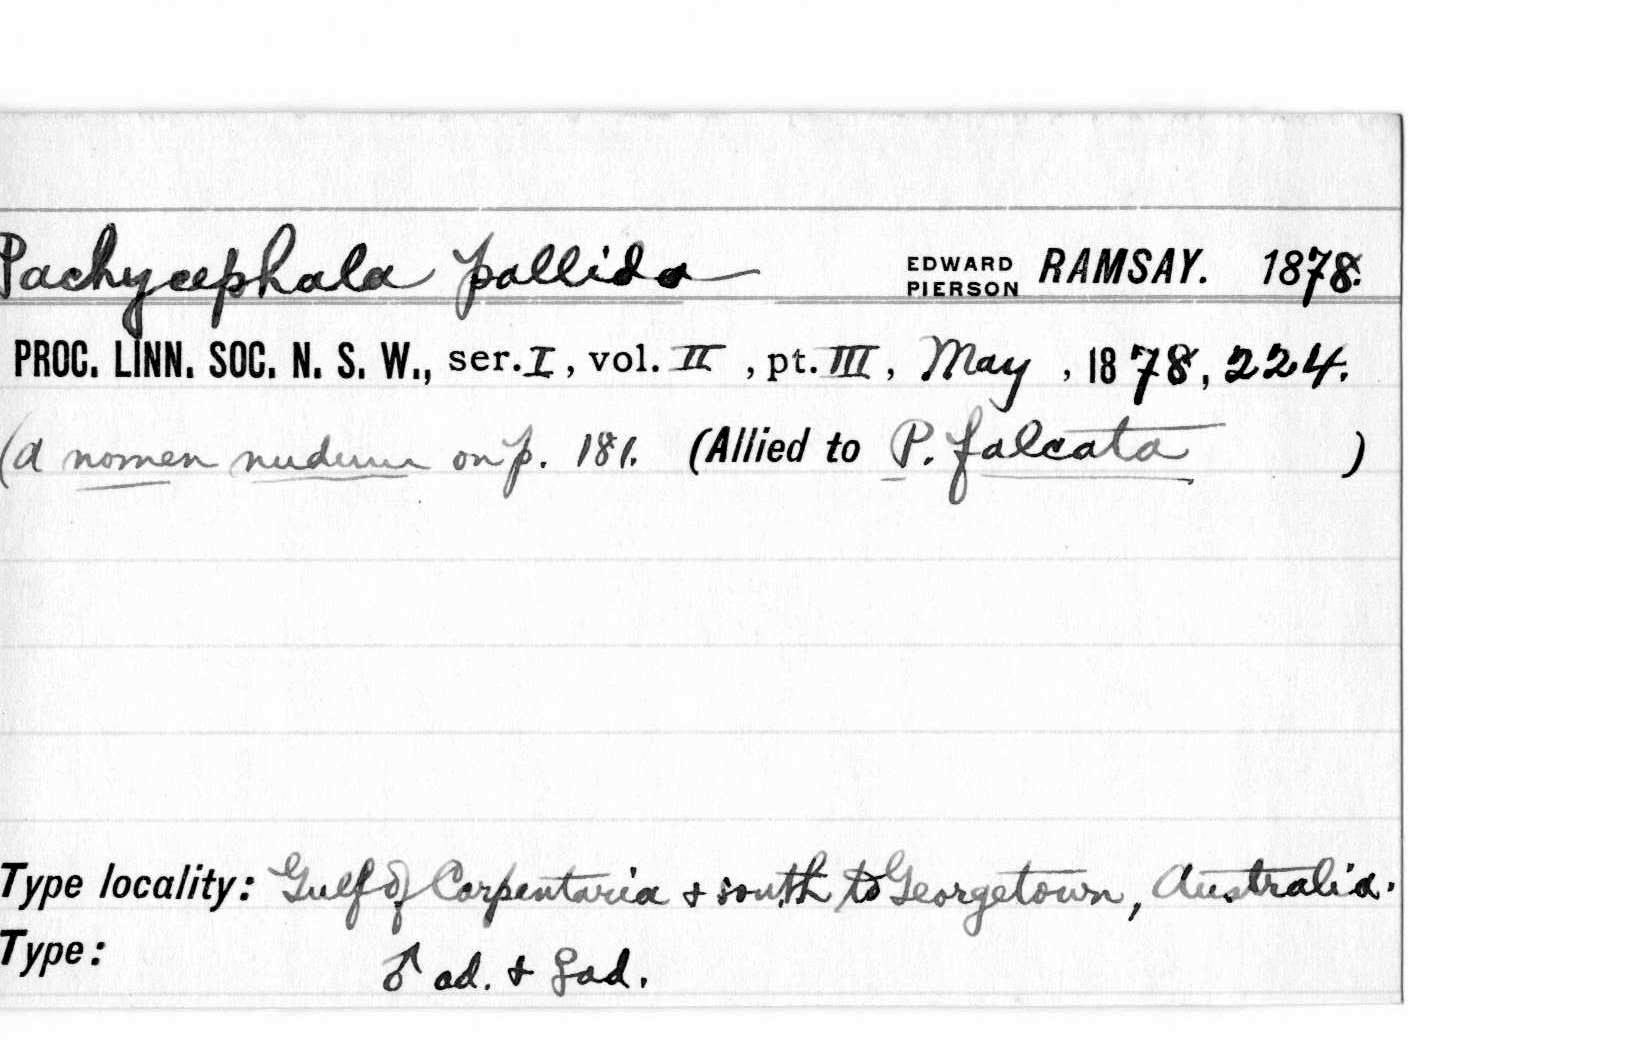 Pachycephala pallida EDWARD PIERSON RAMSAY. 1878.
PROC. LINN. SOC. N. S. W., ser. I, vol. II, pt. III, May, 1878, 224.
(a nomen nudum on p. 181. (Allied to P. falcata )
Type locality: Gulf of Carpentaria & south to Georgetown, Australia.
Type: ♂ ad. & ♀ ad.